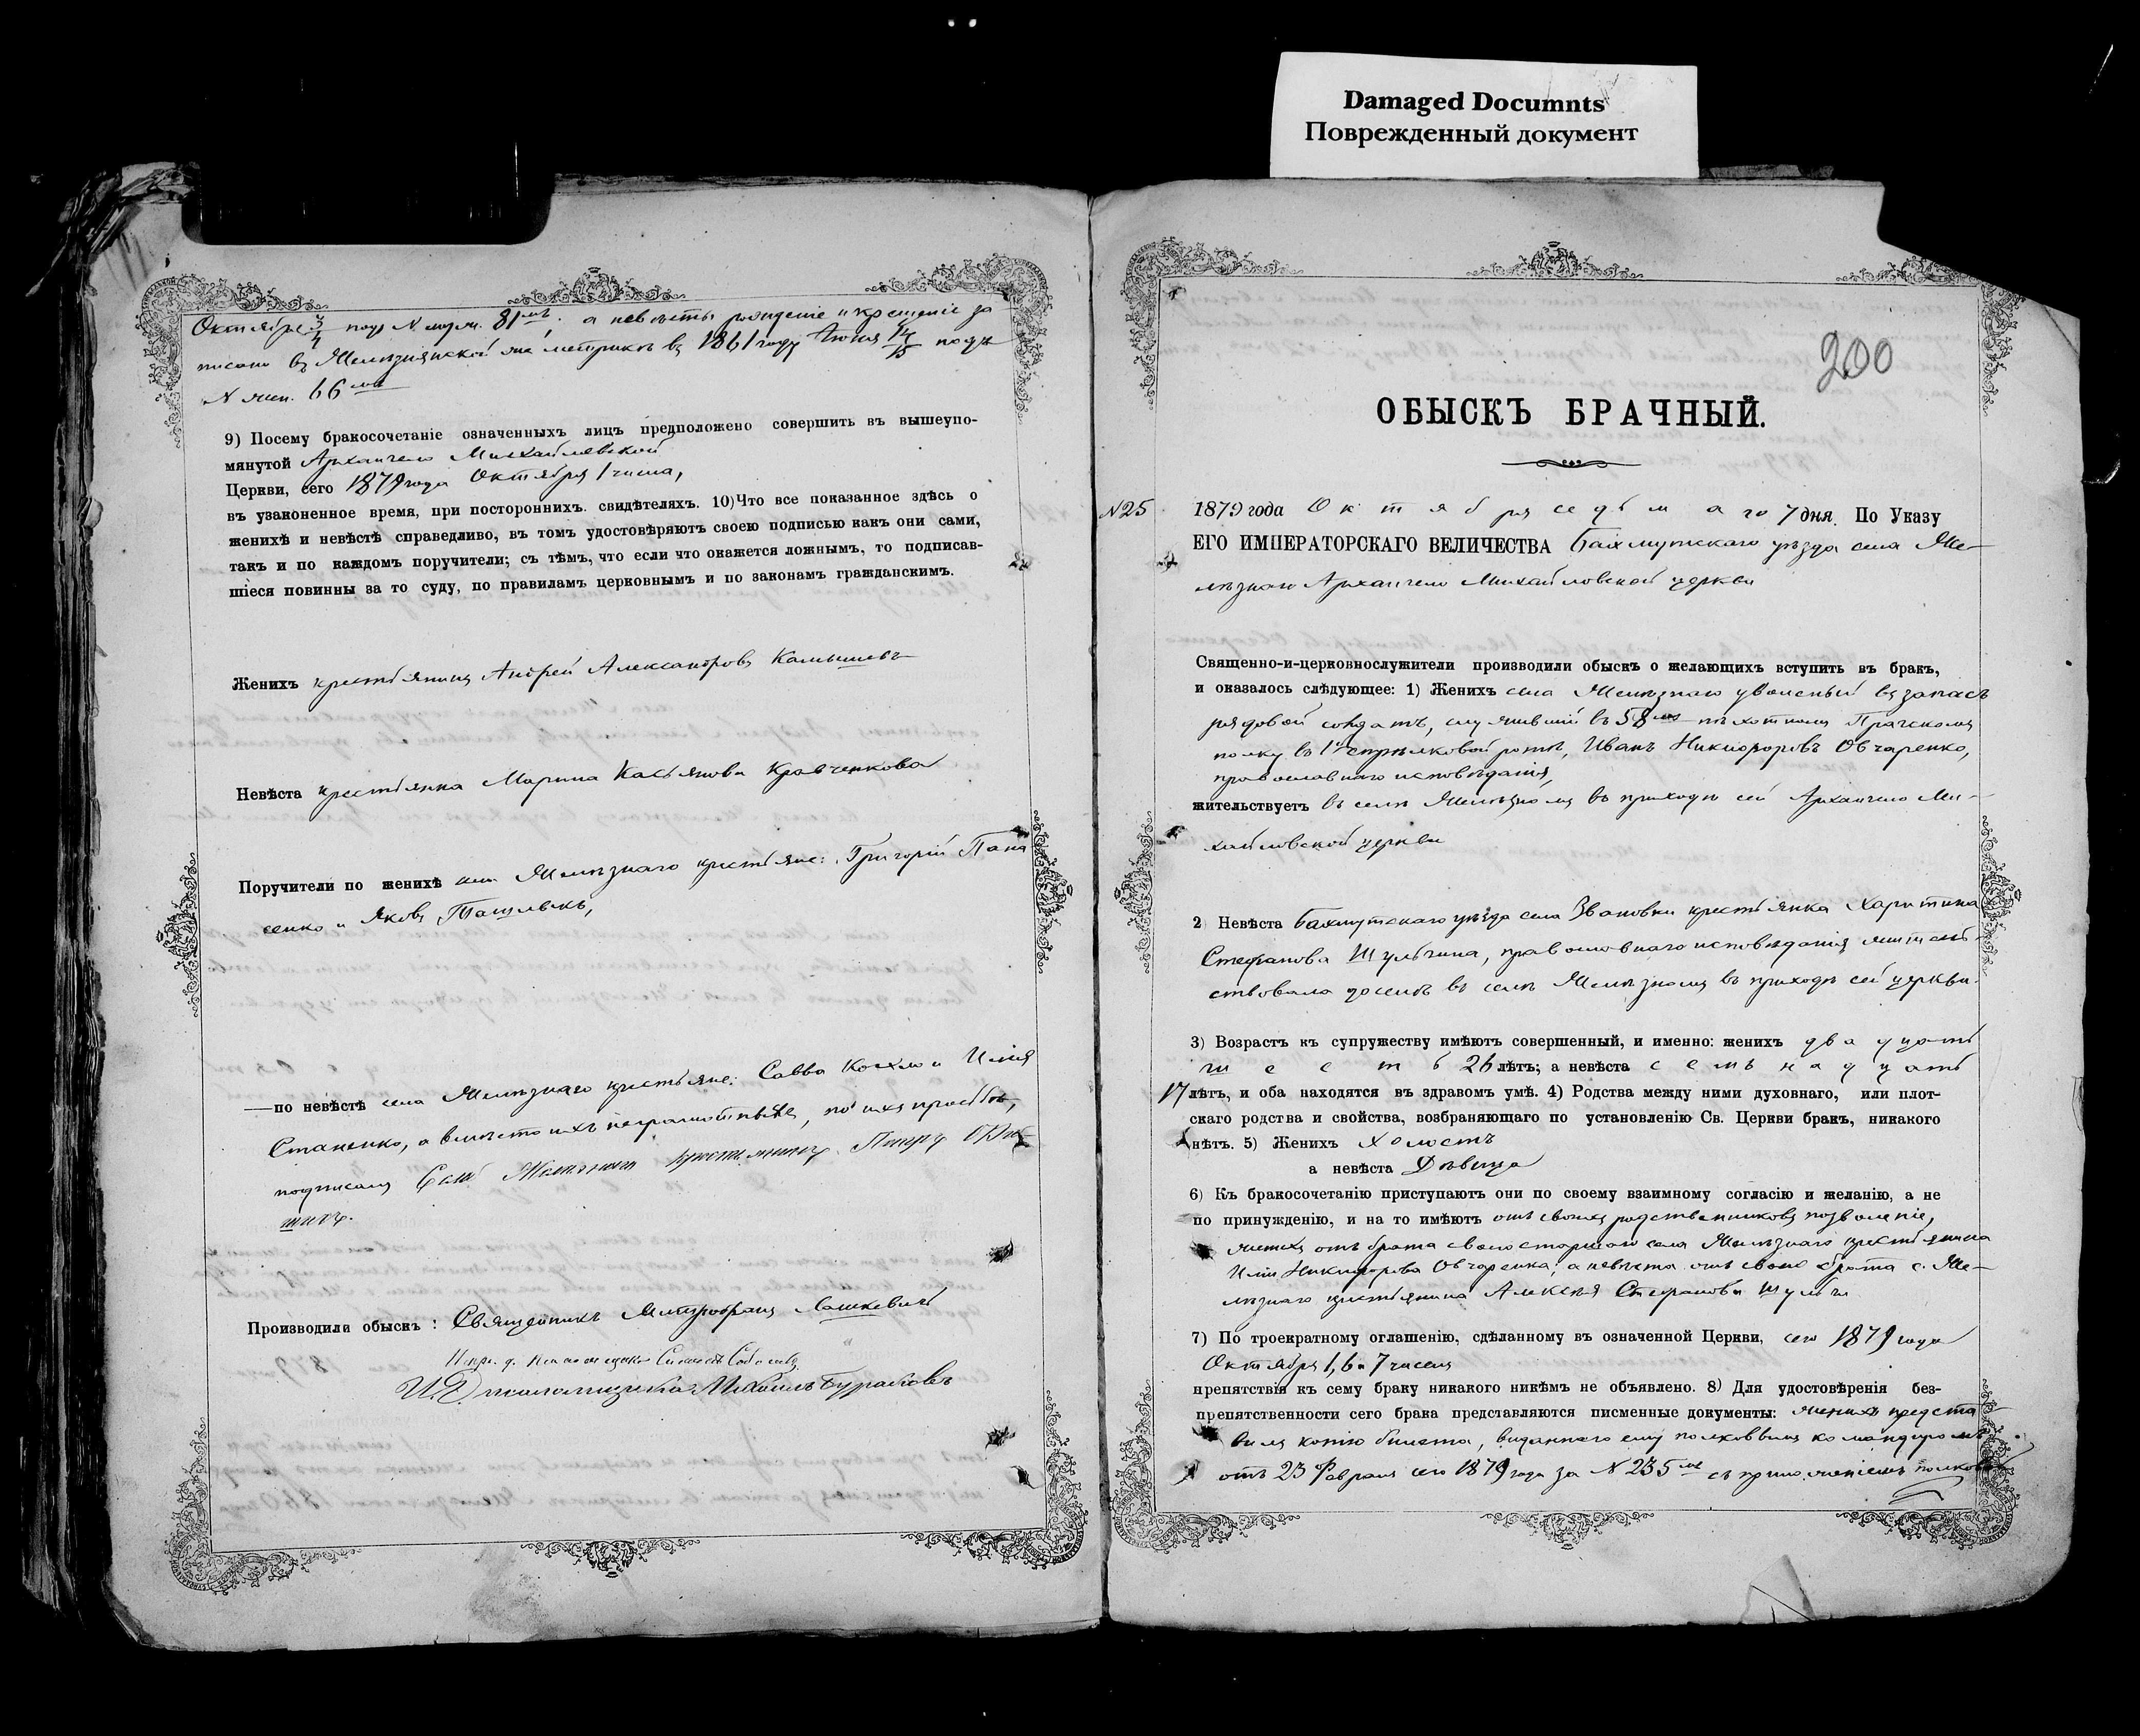 Damaged Documnts
Поврежденный документ
Октября 3/4 подъ N муж. 81мъ, а невѣсты рожденіе и крещеніе за
писано въ Желѣзнянской же метрикѣ въ 1861 году Іюня 14/15 подъ
N жен. 66мъ
9) Посему бракосочетаніе означенныхъ лицъ предположено совершить въ вышеупо-
мянутой Архангело Михайловской
Церкви, сего 1879 года Октября 1 числа,
въ узаконенное время, при постороннихъ. свидѣтеляхъ. 10) Что все показанное здѣсь о
женихѣ и невѣстѣ справедливо, въ томъ удостовѣряютъ своею подписью какъ они сами,
такъ и по каждомъ поручители; съ тѣмъ, что если что окажется ложнымъ, то подписав-
шіеся повинны за то суду, по правиламъ церковнымъ и по законамъ гражданскимъ.
Женихъ крестьянинъ Андрей Александровъ Камышевъ
Невѣста крестьянка Марина Касьянова Кравченкова
Поручители по женихѣ села Желѣзнаго крестьяне: Григорій Пана
сенко и Яковъ
—по невѣстѣ села Желѣзнаго крестьяне: Савва и Илія
Стаценко, а вмѣсто ихъ неграмотныхъ, по ихъ просьбѣ,
подписалъ
Производили обыскъ: Священникъ Митрофанъ Лашкевичъ
И. Д. Псаломщика Михаилъ Бураковъ
200
ОБЫСКЪ БРАЧНЫЙ.
N 25 1879 года Октября седьмаго 7 дня. По Указу
ЕГО ИМПЕРАТОРСКАГО ВЕЛИЧЕСТВА Бахмутскаго уѣзда села Же-
лѣзнаго Архангело Михайловской церкви
Священно-и-церковнослужители производили обыскъ о желающихъ вступить въ бракъ,
и оказалось слѣдующее: 1) Женихъ села Желѣзнаго уволеный въ запасъ
рядовой солдатъ, служившій въ 58мъ пѣхотномъ Прагскомъ
полку въ 1й стрѣлковой ротѣ, Иванъ Никифоровъ Овчаренко,
православнаго исповѣданія,
жительствуетъ въ селѣ Желѣзномъ въ приходѣ сей Архангело Ми-
хайловской церкви
2) Невѣста Бахмутскаго уѣзда села Звановки крестьянка Харитина
Стефанова Шульгина, православнаго исповѣданія жительс-
ствовала доселѣ въ селѣ Желѣзномъ въ приходѣ сей церкви.
3) Возрастъ къ супружеству имѣютъ совершенный, и именно: женихъ двадцать
шесть 26 лѣтъ; а невѣста семнадцать
17 лѣтъ, и оба находятся въ здравомъ умѣ. 4) Родства между ними духовнаго, или плот-
скаго родства и свойства, возбраняющаго по установленію Св. Церкви бракъ, никакого
нѣтъ. 5) Женихъ холостъ
а невѣста Дѣвица
6) Къ бракосочетанію приступаютъ они по своему взаимному согласію и желанію, а не
по принужденію, и на то имѣютъ отъ своихъ родственниковъ позволеніе,
женихъ отъ брата своего старшаго села Желѣзнаго крестьянина
Иліи Никифорова Овчаренка, а невѣста отъ своего брата с. Же-
лѣзнаго крестьянина Алексѣя Стефанова Шульги
7) По троекратному оглашенію, сдѣланному въ означенной Церкви, сего 1879 года
Октября 1, 6 и 7 чиселъ
препятствія къ сему браку никакого никѣмъ не объявлено. 8) Для удостовѣренія без-
препятственности сего брака представляются писменные документы: женихъ предста-
вилъ копію билета, виданнаго ему полковымъ командиромъ
отъ 23 Февраля сего 1879 года за N 235мъ съ приложеніемъ полковой